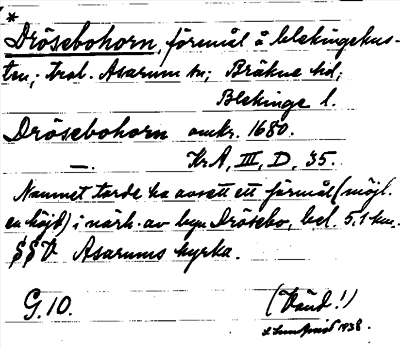 *
Drösebohorn, förmål å blekingekus-
ten; trol. Asarum sn; Bräkne hd;
Blekinge l.
Drösebohorn omkr. 1680.
—. KrA, III, D, 35.
Namnet torde ha avsett ett förmål (möjl.
en höjd) i närh. av byn Drösebo, bel. 5,1 km.
SSV Asarums kyrka.
G. 10. (Vänd!)
1938.